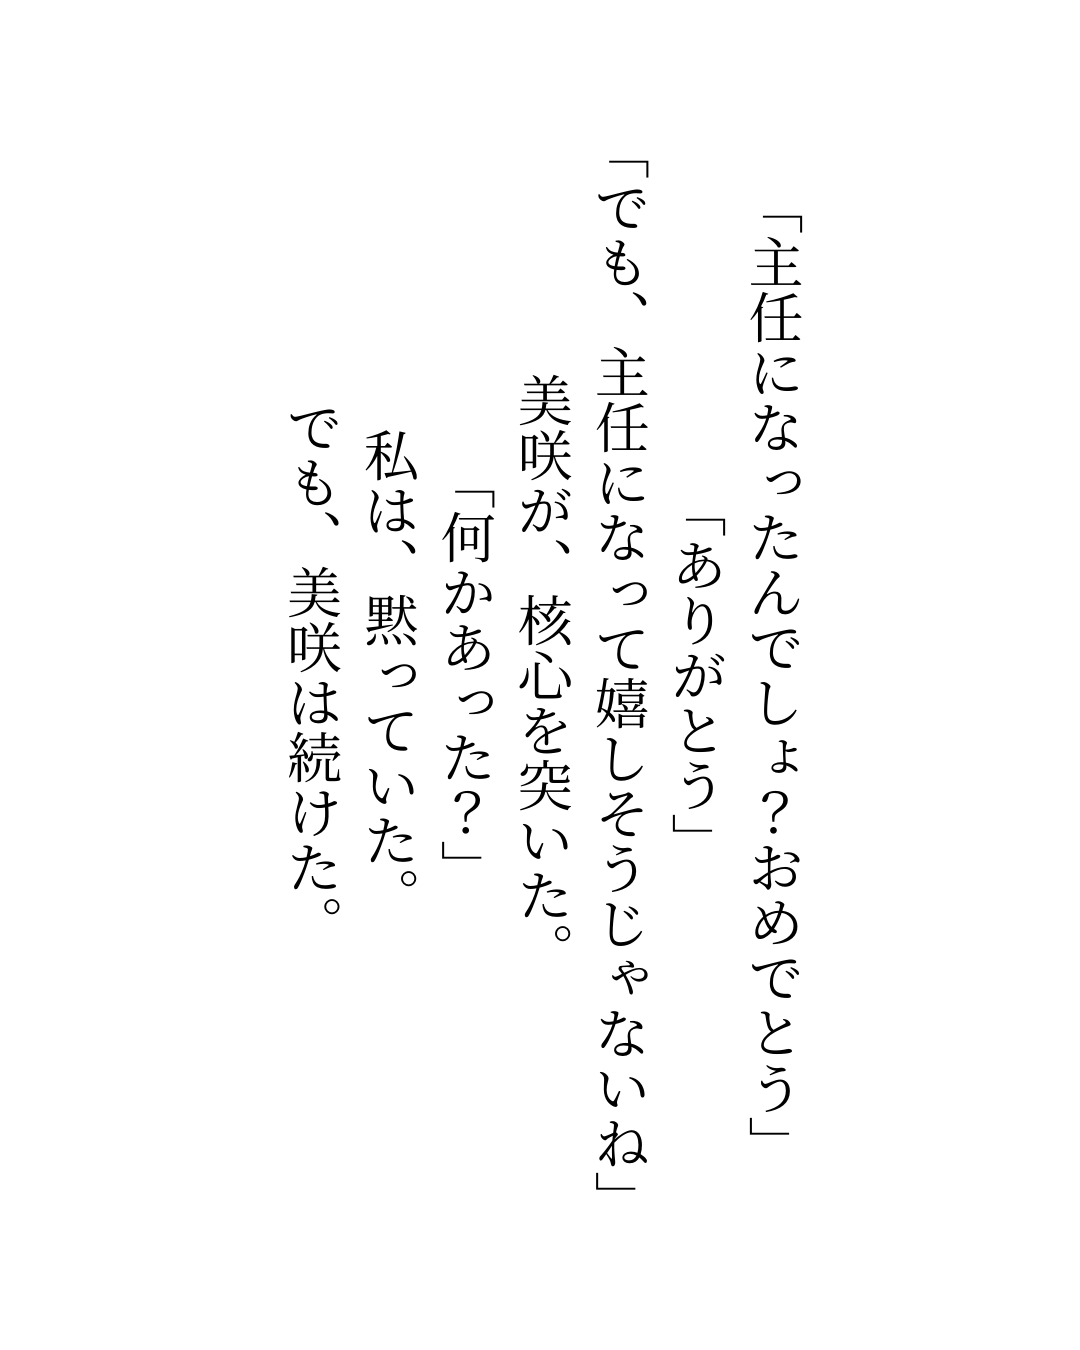 「主任になったんでしょ？おめでとう」
「ありがとう」
「でも、主任になって嬉しそうじゃないね」
美咲が、核心を突いた。
「何かあった？」
私は、黙っていた。
でも、美咲は続けた。